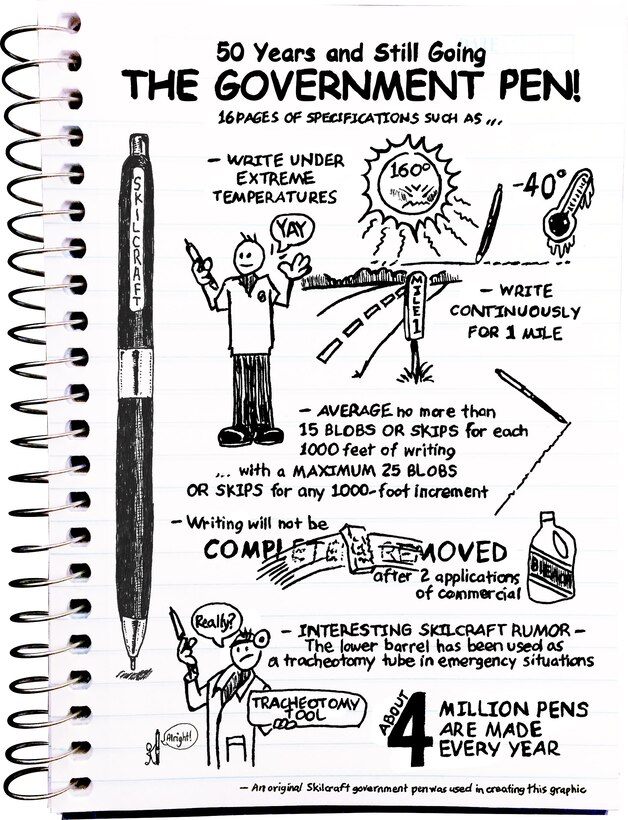 50 Years and Still Going
THE GOVERNMENT PEN!
16 PAGES OF SPECIFICATIONS SUCH AS ...
SKILCRAFT
- WRITE UNDER
EXTREME
TEMPERATURES
160°
-40°
YAY
MILE 1
- WRITE
CONTINUOUSLY
FOR 1 MILE
- AVERAGE no more than
15 BLOBS OR SKIPS for each
1000 feet of writing
... with a MAXIMUM 25 BLOBS
OR SKIPS for any 1000-foot increment
- Writing will not be
COMPLETELY REMOVED
after 2 applications
of commercial
BLEACH
Really?
- INTERESTING SKILCRAFT RUMOR -
The lower barrel has been used as
a tracheotomy tube in emergency situations
TRACHEOTOMY
TOOL
Alright!
ABOUT
4 MILLION PENS
ARE MADE
EVERY YEAR
- An original Skilcraft government pen was used in creating this graphic